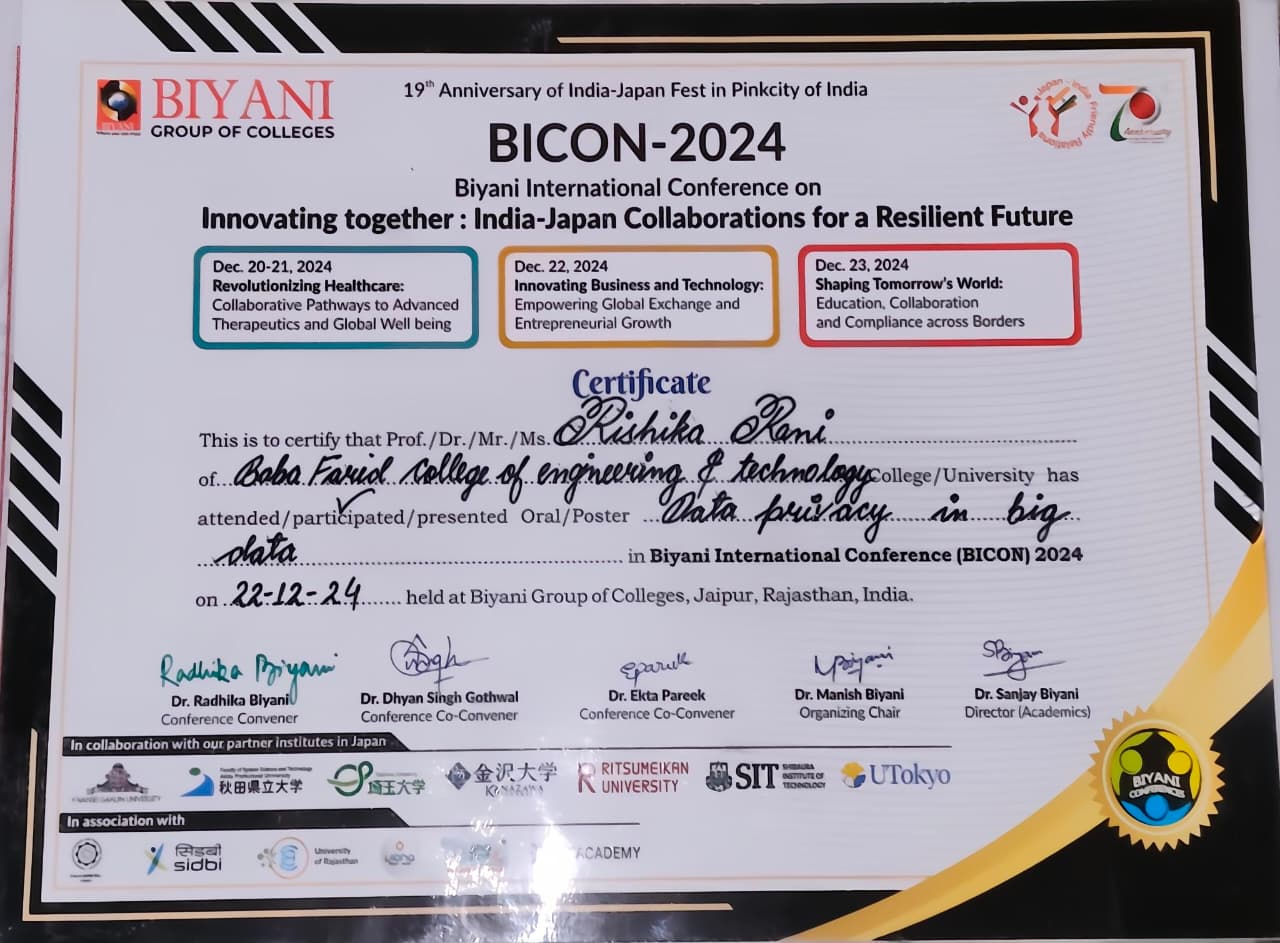 BIYANI
GROUP OF COLLEGES
BIYANI
19th Anniversary of India-Japan Fest in Pinkcity of India
BICON-2024
Biyani International Conference on
Innovating together : India-Japan Collaborations for a Resilient Future
Japan - India Friendly Relations
70
Dec. 20-21, 2024
Revolutionizing Healthcare:
Collaborative Pathways to Advanced
Therapeutics and Global Well being
Dec. 22, 2024
Innovating Business and Technology:
Empowering Global Exchange and
Entrepreneurial Growth
Dec. 23, 2024
Shaping Tomorrow's World:
Education, Collaboration
and Compliance across Borders
Certificate
This is to certify that Prof./Dr./Mr./Ms. Rishika Rani
of Baba Farid College of engineering & technology College/University has
attended/participated/presented Oral/Poster Data privacy in big
data in Biyani International Conference (BICON) 2024
on 22-12-24 held at Biyani Group of Colleges, Jaipur, Rajasthan, India.
Radhika Biyani
Dr. Radhika Biyani
Conference Convener
Dr. Dhyan Singh Gothwal
Conference Co-Convener
Dr. Ekta Pareek
Conference Co-Convener
Dr. Manish Biyani
Organizing Chair
Dr. Sanjay Biyani
Director (Academics)
In collaboration with our partner institutes in Japan
秋田県立大学
埼玉大学
金沢大学
KANAZAWA
RITSUMEIKAN
UNIVERSITY
SIT SHIBAURA INSTITUTE OF TECHNOLOGY
UTokyo
BIYANI
CONFERENCES
In association with
सिडबी
sidbi
University
of Rajasthan
ACADEMY